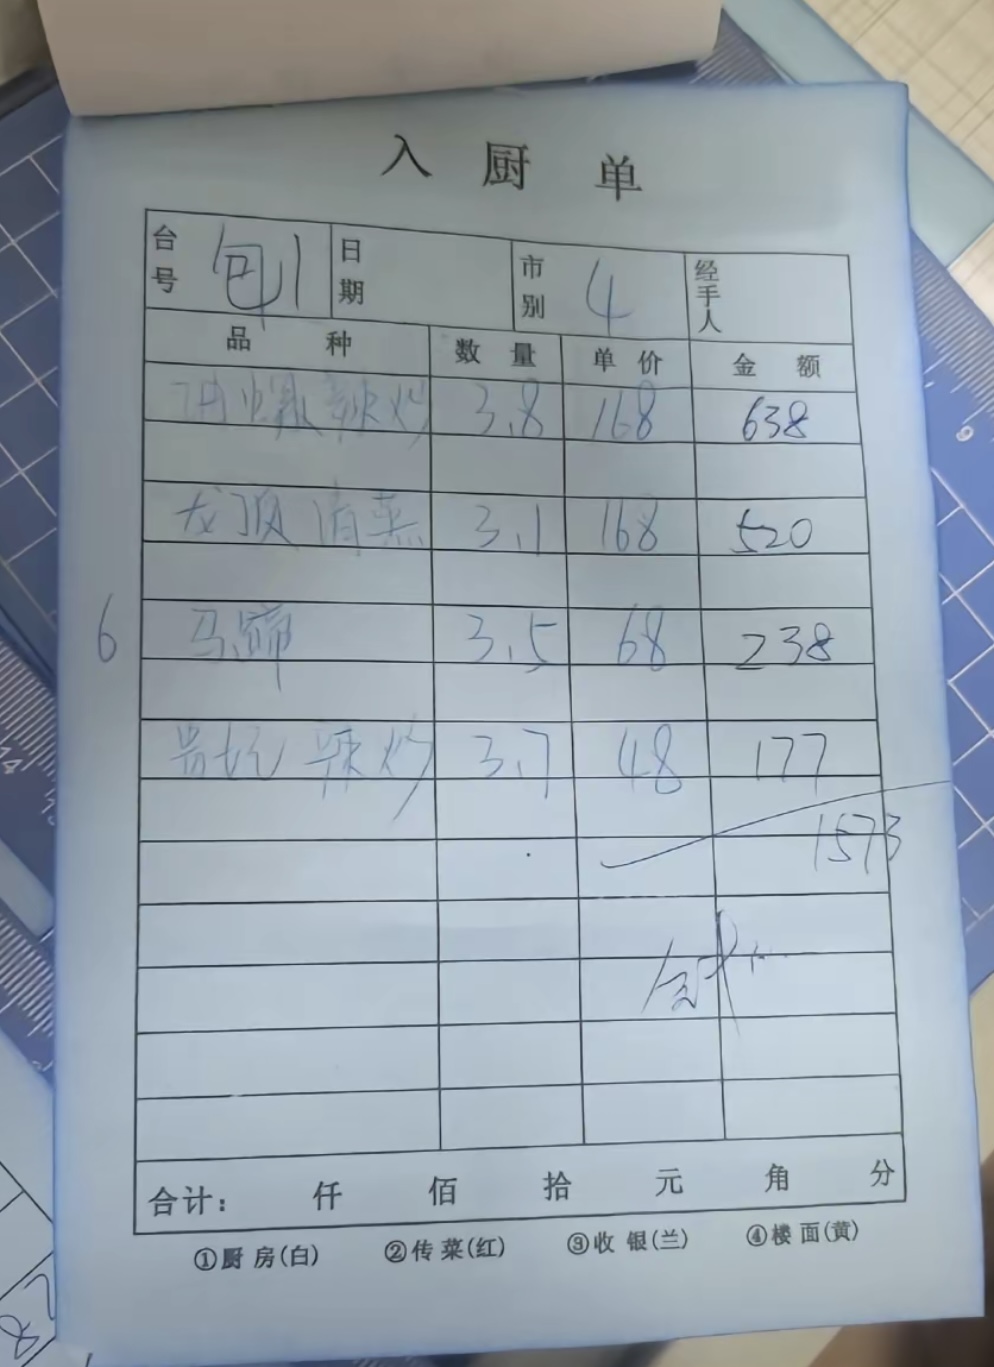 入厨单
台号 包1 日期 市别 4 经手人
品种 数量 单价 金额
油爆辣炒 3.8 168 638
龙頂清蒸 3.1 168 520
6 马蹄 3.5 68 238
贵妃 辣炒 3.7 48 177
1573
合计: 仟 佰 拾 元 角 分
①厨房(白) ②传菜(红) ③收银(兰) ④楼面(黄)